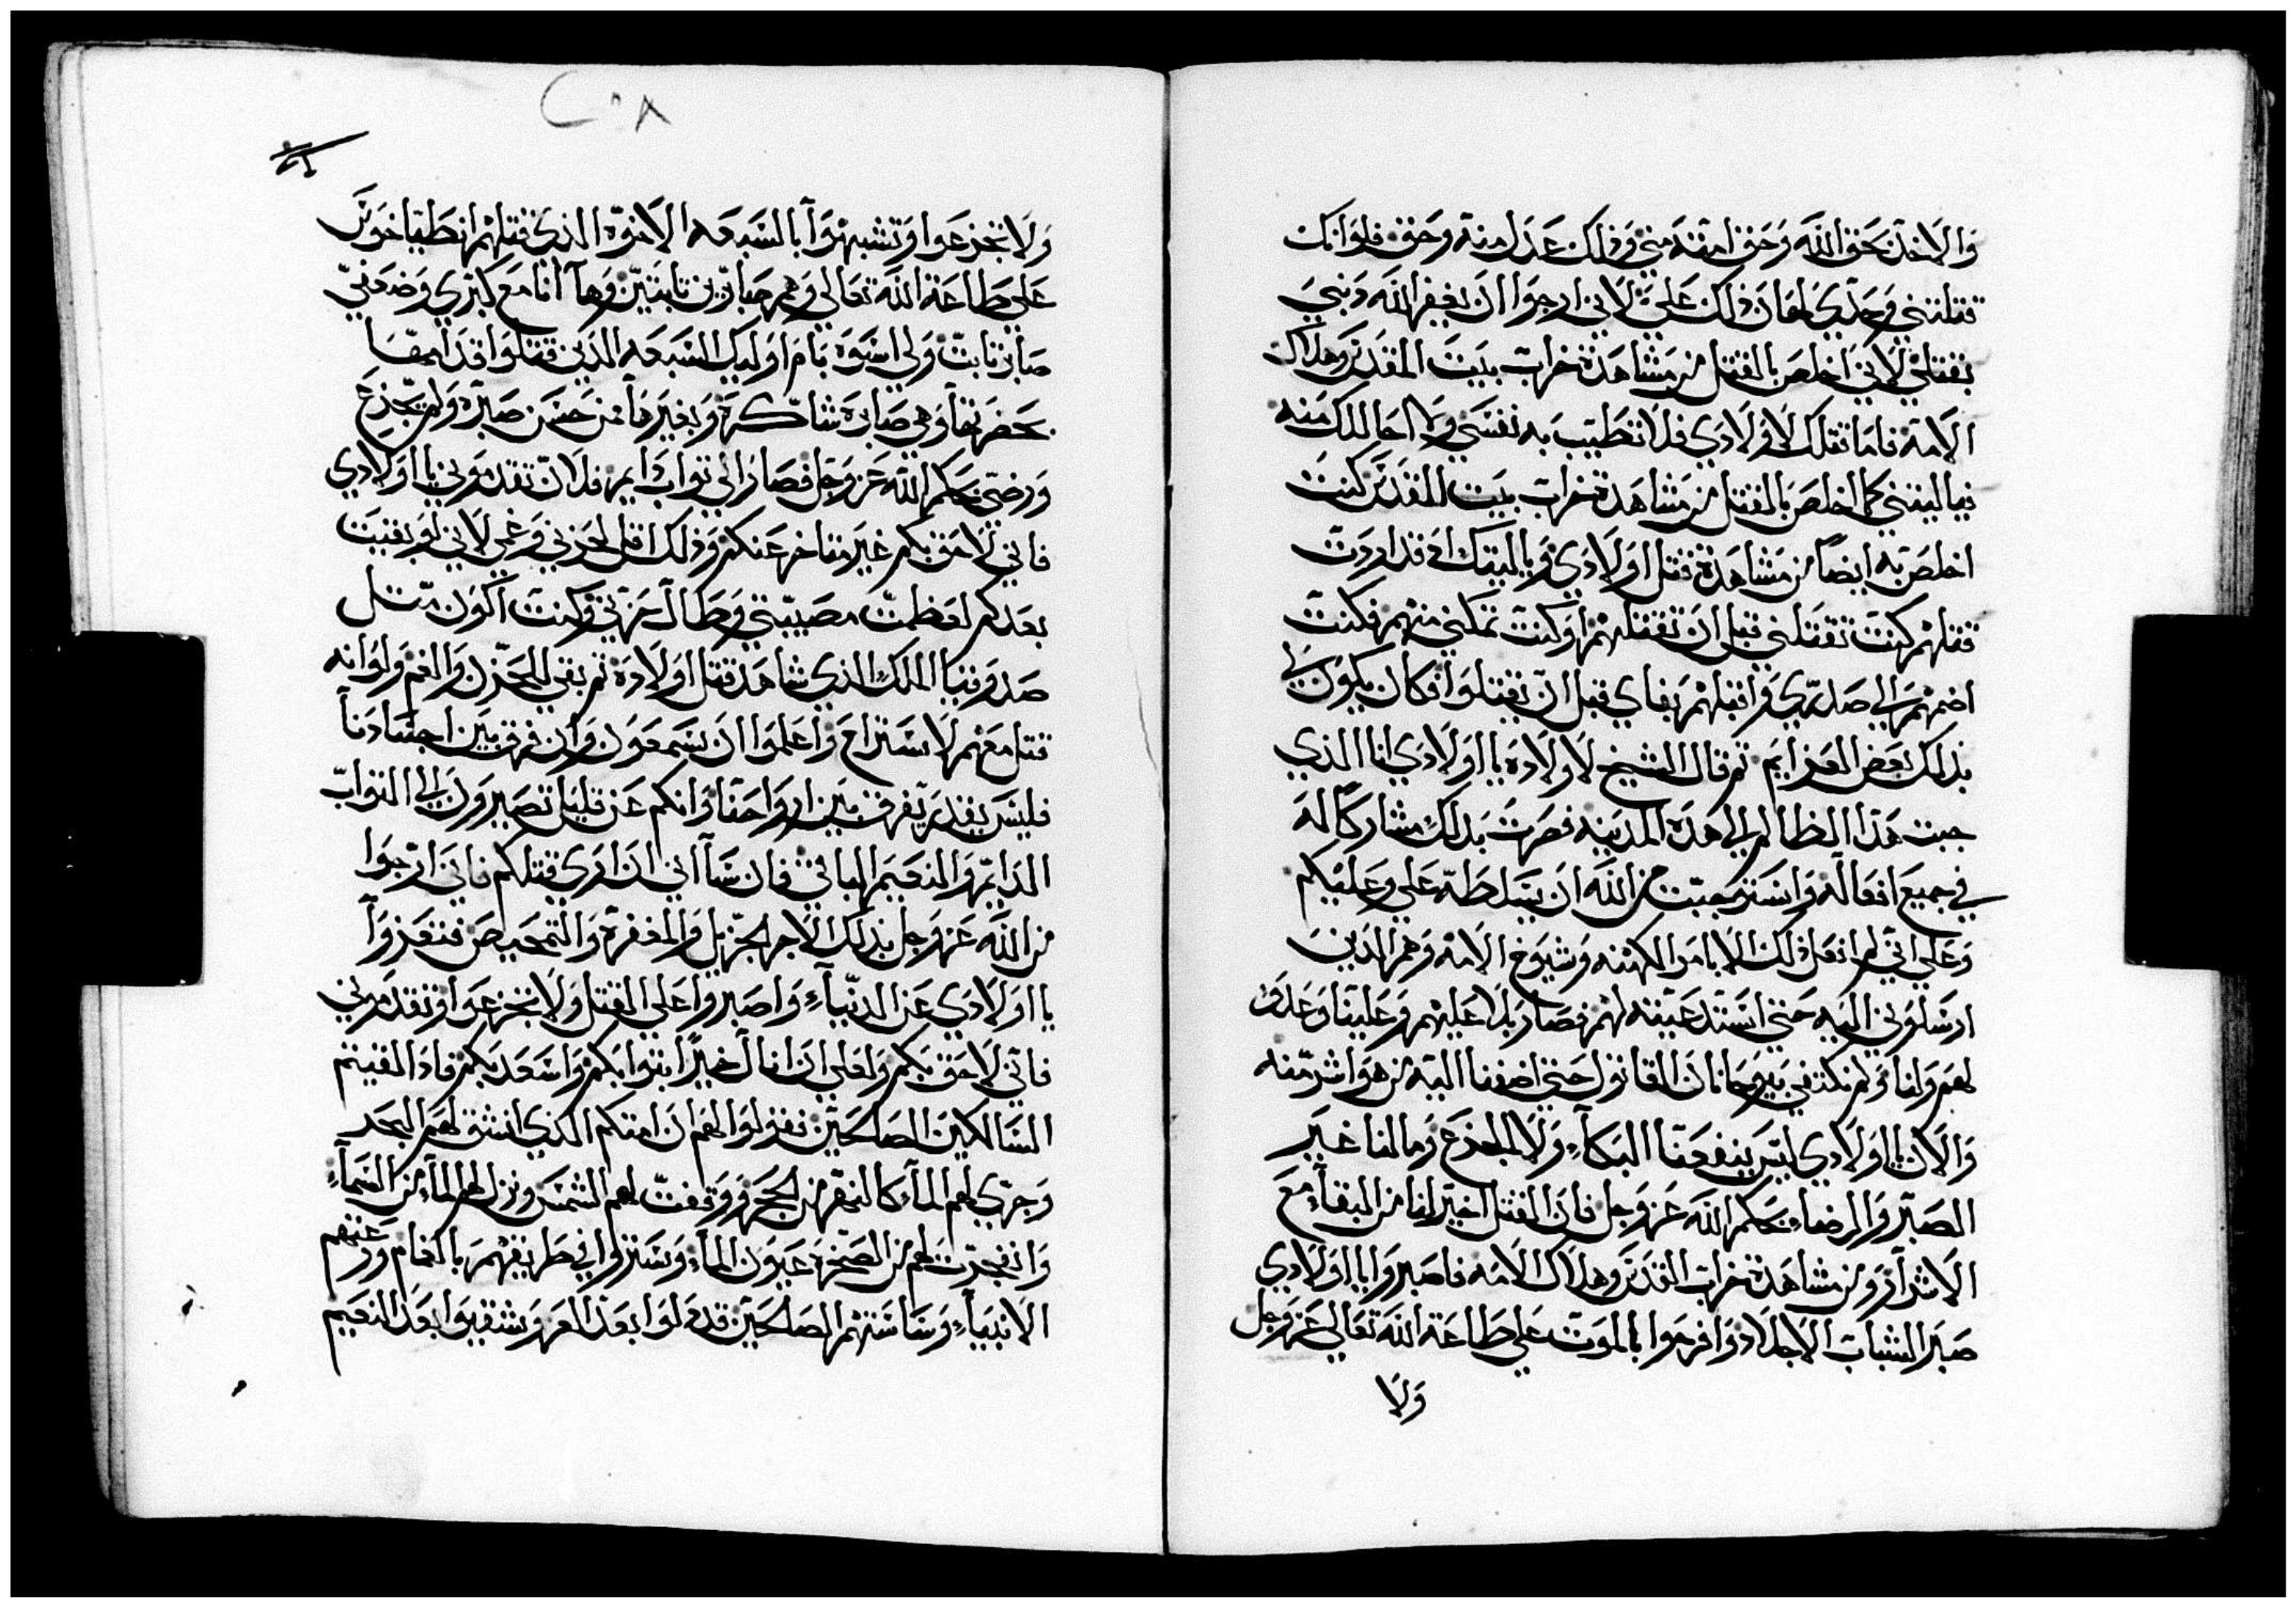 والاخذ بحق الله وحق امته مني وفي ذلك عدل منه وحق فلو انك
قتلتني وحدي لهان ذلك علي لاني ارجوا ان يغفر الله ذنبي
بقتلي لاني اخلص بالقتل من مشاهدة خراب بيت المقدس وهلاك
الامة فاما قتلك لاولادي فلا تطيب به نفسي ولا احاللك منه
فيا ليتني كما اخلص بالقتل من مشاهدة خراب بيت المقدس كنت
اخلص به ايضا من مشاهدة قتل اولادي ويا ليتك اذ قد اردت
قتلهم كنت تقتلني قبل ان تقتلهم او كنت تمكني منهم فكنت
اضمهم الي صدري واقبلهم بفاي قبل ان يقتلوا فكان يكون لي
بذلك بعض العزايم ثم قال الشيخ لاولاده يا اولادي انا الذي
جبت هذا الظالم الي هذه المدينه فصرت بذلك مشاركا له
في جميع افعاله واستوجبت من الله ان يسلطه علي وعليكم
وعلي اني لم افعل ذلك الا بامر الكهنه وشيوخ الامه وهم الذين
ارسلوني اليه حتي استدعيته لهم فصار بلا عليهم وعلينا وعدو
لهم ولنا ولم نكتفي بيوحانان القانول حتي اضفنا اليه من هو اشر منه
والان يا اولادي ليس ينفعنا البكاء ولا الجزع وما لنا غير
الصبر والرضاء بحكم الله عز وجل فان القتل اخير لنا من البقاء مع
الاشرار ومن مشاهدة خراب القدس وهلاك الامه فاصبروا يا اولادي
صبر الشباب الاجلاد وافرحوا بالموت علي طاعة الله تعالي عز وجل
ولا
٢٠٨
ولا تجزعوا وتشبهوا بالسبعه الاخوة الذي قتلهم انطياخوس
علي طاعة الله تعالي وهم صابرين ثابتين وها انا مع كبري وضعفي
صابر ثابت ولي اسوة بام اوليك السبعه الذين قتلوا قدامها
بحضرتها وهي صابرة شاكرة وبغيرها من حسن صبره ولم يجزع
ورضي بحكم الله عز وجل فصار الي ثواب ايم فلان تقدموني يا اولادي
فاني لاحق بكم غير متاخر عنكم وذلك اقل لحزني وغمي لاني لو بقيت
بعدكم لعظمت مصيبتي وطال حزني وكنت اكون مثل
صدوقيا الملك الذي شاهد قتل اولاده ثم بقي للحزن والغم ولو انه
قتل معهم لاستراح واعلموا ان شمعون وان فرق بين اجسادنا
فليس يقدر يفرق بين ارواحنا وانكم عن قليل تصيرون الي الثواب
الدايم والنعيم الباقي فان شااني ان اري قتلكم فاني ارجوا
من الله عز وجل بذلك الاجر الجزيل والمغفرة والتمحيص فتعزوا
يا اولادي عن الدنياء واصبروا علي القتل ولا تجزعوا وتقدموني
فاني لاحق بكم ولعلي ان انال خيرا بثوابكم واسعد بكم فاذا لقيتم
السالكين الصالحين فقولوا لهم ان امتكم الذي انشق لهم البحر
وجري لهم الماء كالنهر من الحجر ووقفت لهم الشمس ونزل لهم الماء من السماء
وانفجرت لهم من الصخرة عيون الماء وستروا في طريقهم بالغمام ورعتهم
الانبياء وساستهم الصالحين قد ذلوا بعد العز وشقيوا بعد النعيم